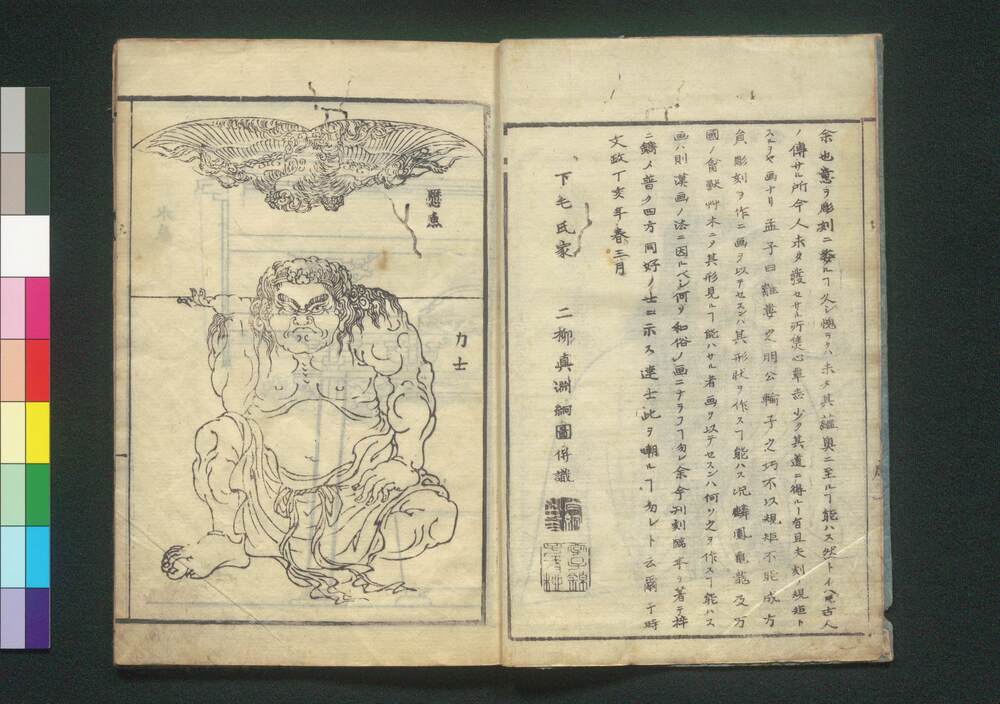 余也意ヲ彫刻ニ委ルヿ久シ愧ラクハ未タ其蘊奥ニ至ルヿ能ハス然トイヘ𪜈古人
ノ傳サル所今人未タ發セサル所焦心單志少ク其道ニ得ルヿ有且夫刻ノ規矩ト
スルヤ画ナリ孟子曰離婁之明公輸子之巧不以規矩不能成方
員彫刻ヲ作ニ画ヲ以テセスンハ其形状ヲ作スヿ能ハス况麟鳳亀龍及万
國ノ禽獣艸木ニノ其形見ルヿ能ハサル者画ヲ以テセスンハ何ソ之ヲ作スヿ能ハス
画ハ則漢画ノ法ニ因ルベシ何ソ和俗ノ画ニナラフヿ勿レ余今刋刻臨本ヲ著テ梓
ニ鏤メ普ク四方同好ノ士ニ示ス達士此ヲ嘲ルヿ勿レト云爾于時
文政丁亥年春三月
下毛氏家
二柳眞渊絅圖併識
懸魚
力士